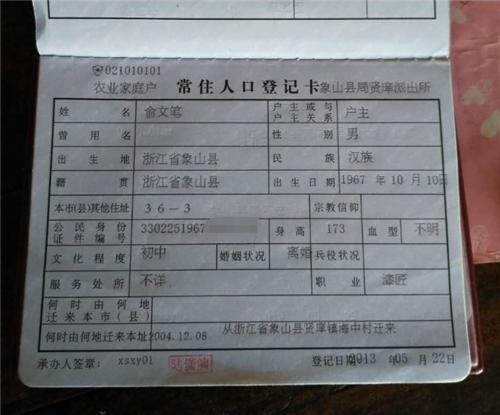 021010101
农业家庭户 常住人口登记卡 象山县局贤庠派出所
姓名 俞文笔 户主或与户主关系 户主
曾用名 性别 男
出生地 浙江省象山县 民族 汉族
籍贯 浙江省象山县 出生日期 1967 年 10 月 10日
本市(县)其他住址 36-3 宗教信仰
公民身份证件编号 3302251967 身高 173 血型 不明
文化程度 初中 婚姻状况 离婚 兵役状况
服务处所 不详 职业 漆匠
何时由何地迁来本市(县)
何时由何地迁来本址 2004.12.08 从浙江省象山县贤庠镇海中村迁来
承办人签章: xsxy01 登记日期: 2013 年 05 月 22日